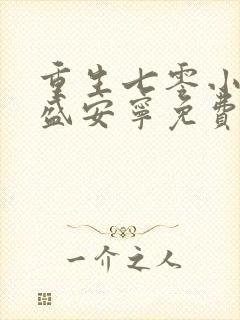 重生七零小
盛安宁免费
一介之人